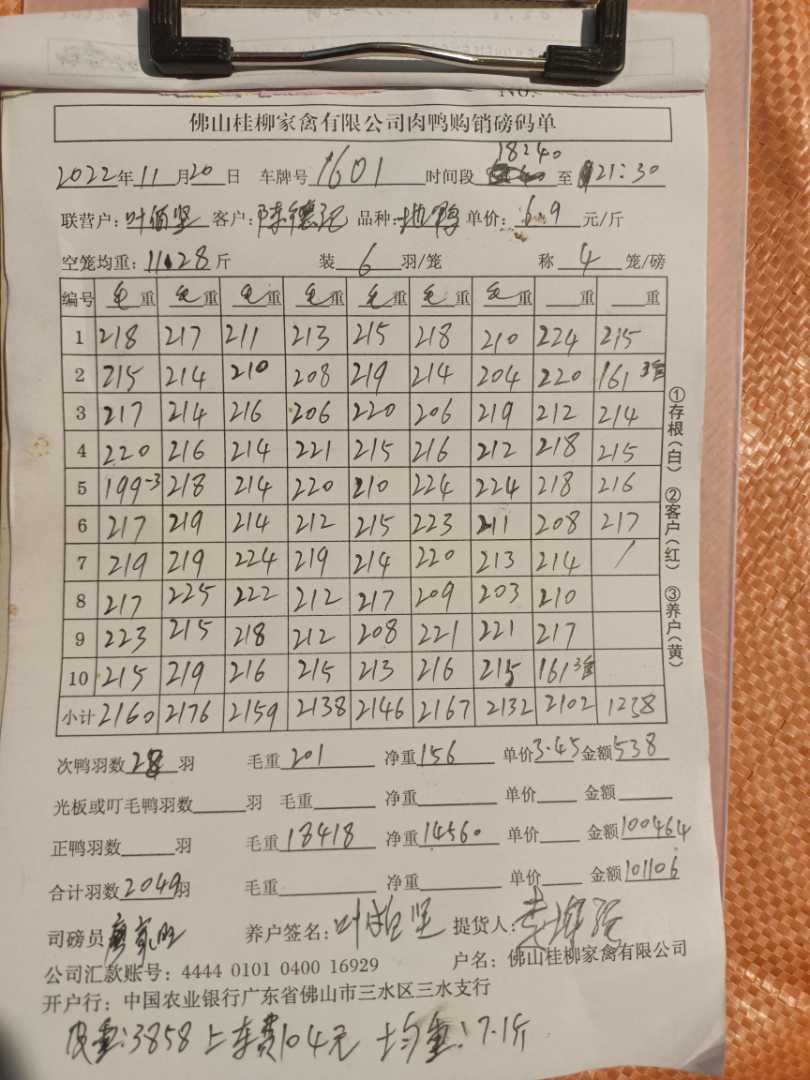 No.
佛山桂柳家禽有限公司肉鸭购销磅码单
2022年11月20日 车牌号1601 时间段18:240至21:30
联营户:叶佰坚 客户:陈德记 品种:地鸭 单价:6.9元/斤
空笼均重:11.28斤 装6羽/笼 称4笼/磅
编号 毛重 毛重 毛重 毛重 毛重 毛重 毛重 重 重
1 218 217 211 213 215 218 210 224 215
2 215 214 210 208 219 214 204 220 161 3笼
3 217 214 216 206 220 206 219 212 214
4 220 216 214 221 215 216 212 218 215
5 199-3 218 214 220 210 224 224 218 216
6 217 219 214 212 215 223 211 208 217
7 219 219 224 219 214 220 213 214 /
8 217 225 222 212 217 209 203 210
9 223 215 218 212 208 221 221 217
10 215 219 216 215 213 216 215 161 3笼
小计 2160 2176 2159 2138 2146 2167 2132 2102 1238
①存根(白) ②客户(红) ③养户(黄)
次鸭羽数28羽 毛重201 净重156 单价3.45 金额538
光板或叮毛鸭羽数 羽 毛重 净重 单价 金额
正鸭羽数 羽 毛重18418 净重14560 单价 金额100464
合计羽数2049羽 毛重 净重 单价 金额101106
司磅员 养户签名:叶佰坚 提货人:
公司汇款账号:4444 0101 0400 16929 户名:佛山桂柳家禽有限公司
开户行:中国农业银行广东省佛山市三水区三水支行
皮重:3858 上车费104元 均重:7.1斤